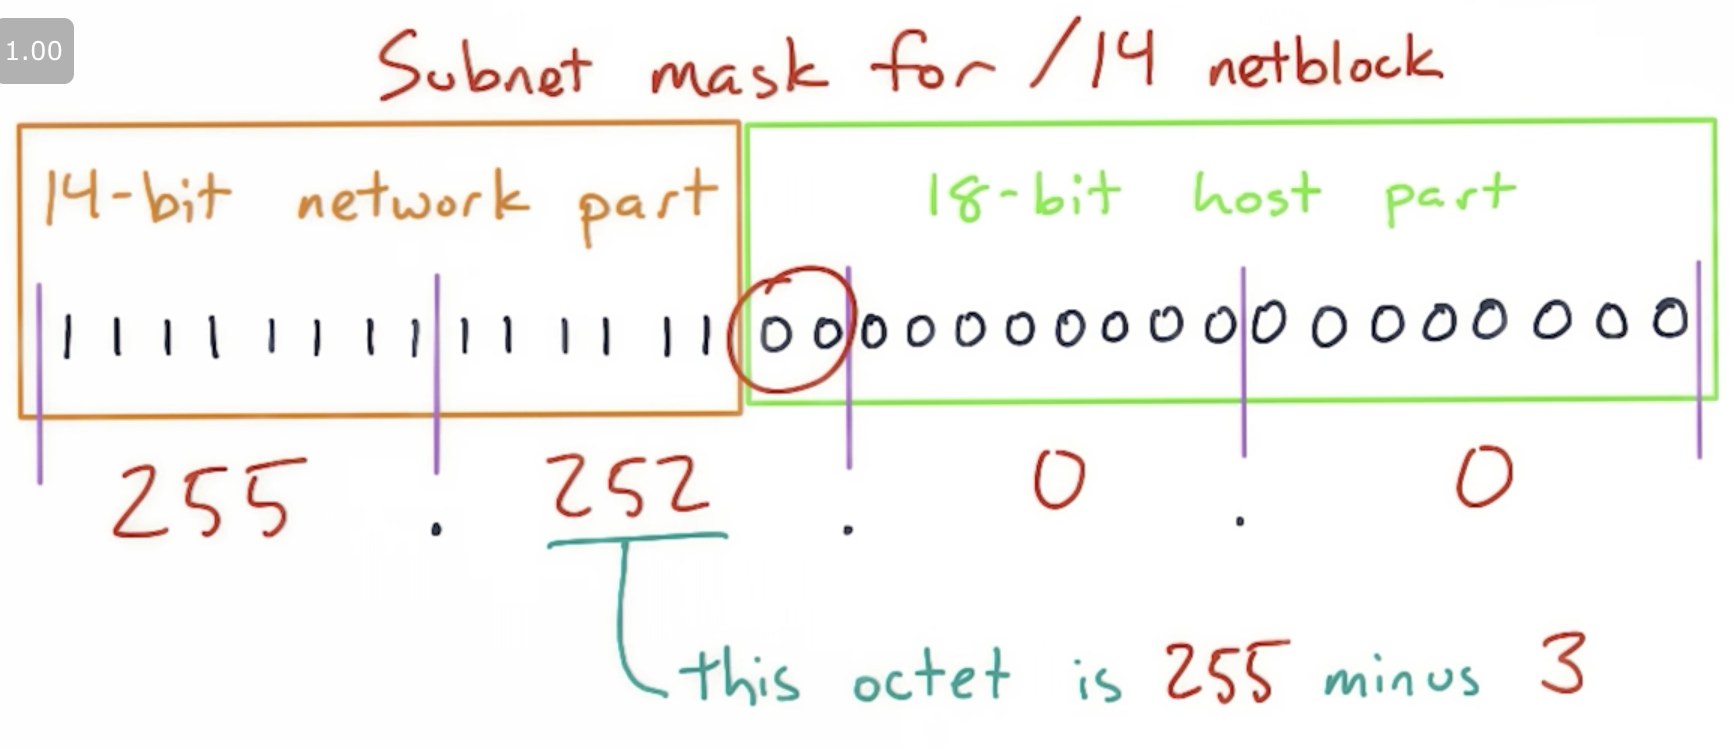 1.00
Subnet mask for /14 netblock
14-bit network part 18-bit host part
1 1 1 1 1 1 1 1 1 1 1 1 1 1 0 0 0 0 0 0 0 0 0 0 0 0 0 0 0 0 0 0
255 . 252 . 0 . 0
this octet is 255 minus 3